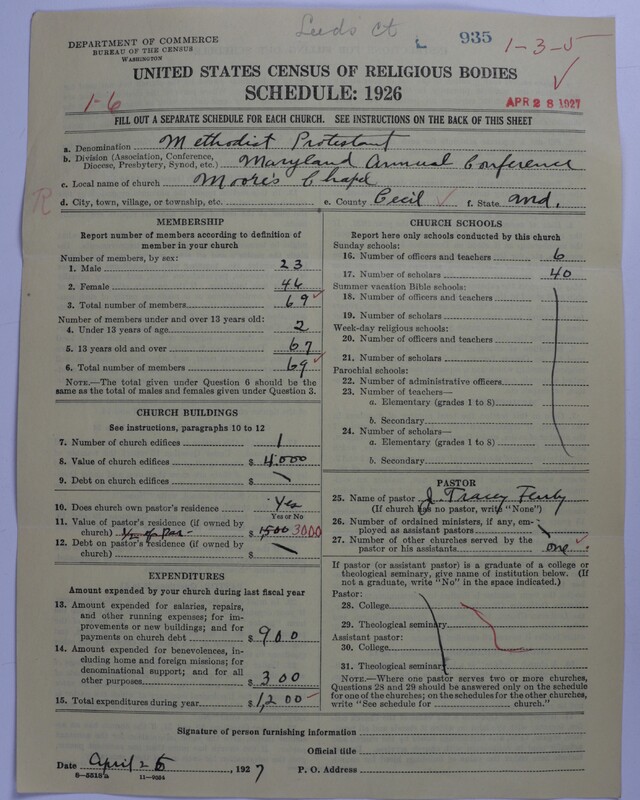 Leeds Ct
L 935 1-3-5
DEPARTMENT OF COMMERCE
BUREAU OF THE CENSUS
WASHINGTON
UNITED STATES CENSUS OF RELIGIOUS BODIES
SCHEDULE: 1926
1-6
APR 28 1927
FILL OUT A SEPARATE SCHEDULE FOR EACH CHURCH. SEE INSTRUCTIONS ON THE BACK OF THIS SHEET
a. Denomination Methodist Protestant
b. Division (Association, Conference, Diocese, Presbytery, Synod, etc.) Maryland Annual Conference
c. Local name of church Moore's Chapel
R
d. City, town, village, or township, etc. e. County Cecil ✓ f. State Md.
MEMBERSHIP
Report number of members according to definition of
member in your church
Number of members, by sex:
1. Male 23
2. Female 46
3. Total number of members 69 ✓
Number of members under and over 13 years old:
4. Under 13 years of age 2
5. 13 years old and over 67
6. Total number of members 69 ✓
NOTE.—The total given under Question 6 should be the
same as the total of males and females given under Question 3.
CHURCH BUILDINGS
See instructions, paragraphs 10 to 12
7. Number of church edifices 1
8. Value of church edifices $ 4000
9. Debt on church edifices $
10. Does church own pastor's residence Yes
Yes or No
11. Value of pastor's residence (if owned by
church) 1/2 of Par. $ 1500 3000
12. Debt on pastor's residence (if owned by
church) $
EXPENDITURES
Amount expended by your church during last fiscal year
13. Amount expended for salaries, repairs,
and other running expenses; for im-
provements or new buildings; and for
payments on church debt $ 900
14. Amount expended for benevolences, in-
cluding home and foreign missions; for
denominational support; and for all
other purposes $ 300
15. Total expenditures during year $ 1,200
CHURCH SCHOOLS
Report here only schools conducted by this church
Sunday schools:
16. Number of officers and teachers 6
17. Number of scholars 40
Summer vacation Bible schools:
18. Number of officers and teachers
19. Number of scholars
Week-day religious schools:
20. Number of officers and teachers
21. Number of scholars
Parochial schools:
22. Number of administrative officers
23. Number of teachers—
a. Elementary (grades 1 to 8)
b. Secondary
24. Number of scholars—
a. Elementary (grades 1 to 8)
b. Secondary
PASTOR
25. Name of pastor J. Tracey
(If church has no pastor, write "None")
26. Number of ordained ministers, if any, em-
ployed as assistant pastors
27. Number of other churches served by the
pastor or his assistants one ✓
If pastor (or assistant pastor) is a graduate of a college or
theological seminary, give name of institution below. (If
not a graduate, write "No" in the space indicated.)
Pastor:
28. College
29. Theological seminary
Assistant pastor:
30. College
31. Theological seminary
NOTE.—Where one pastor serves two or more churches,
Questions 28 and 29 should be answered only on the schedule
for one of the churches; on the schedules for the other churches,
write "See schedule for church."
Signature of person furnishing information
Official title
Date April 26, 1927 P. O. Address
8—5518a 11—9054